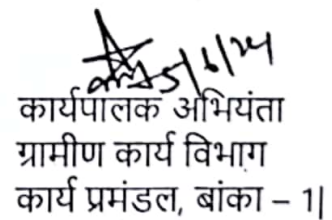 5/6/24
कार्यपालक अभियंता
ग्रामीण कार्य विभाग
कार्य प्रमंडल, बांका – 1|